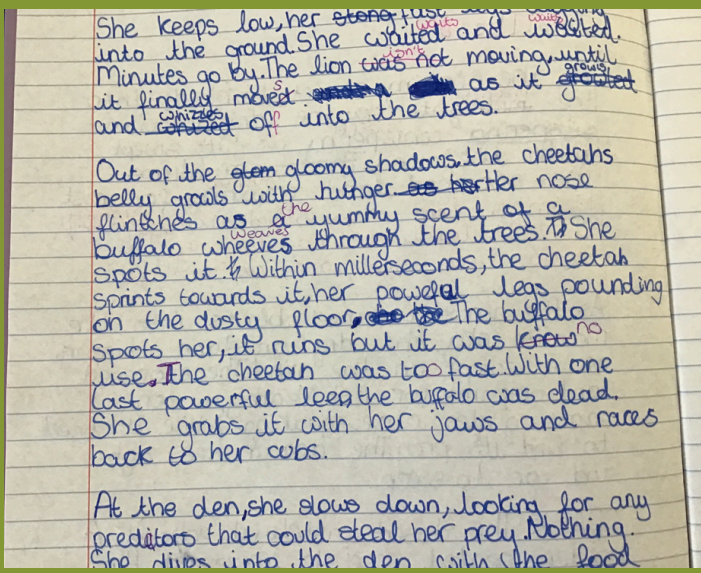 She keeps low, her stong fast legs
into the ground. She waits waited and waits waited.
Minutes go by. The lion was isn't not moving, until
it finally moves. as it growls growled
and whizzes whizzed off into the trees.
Out of the glom gloomy shadows, the cheetahs
belly growls with hunger. as her Her nose
flintches as a the yummy scent of a
buffalo wheeves weaves through the trees. She
spots it. Within millerseconds, the cheetah
sprints towards it, her poweful legs pounding
on the dusty floor. The buffalo
spots her, it runs but it was know no
use. The cheetah was too fast. With one
last powerful leep the buffalo was dead.
She grabs it with her jaws and races
back to her cubs.
At the den, she slows down, looking for any
preditors that could steal her prey. Nothing.
She dives into the den with the food